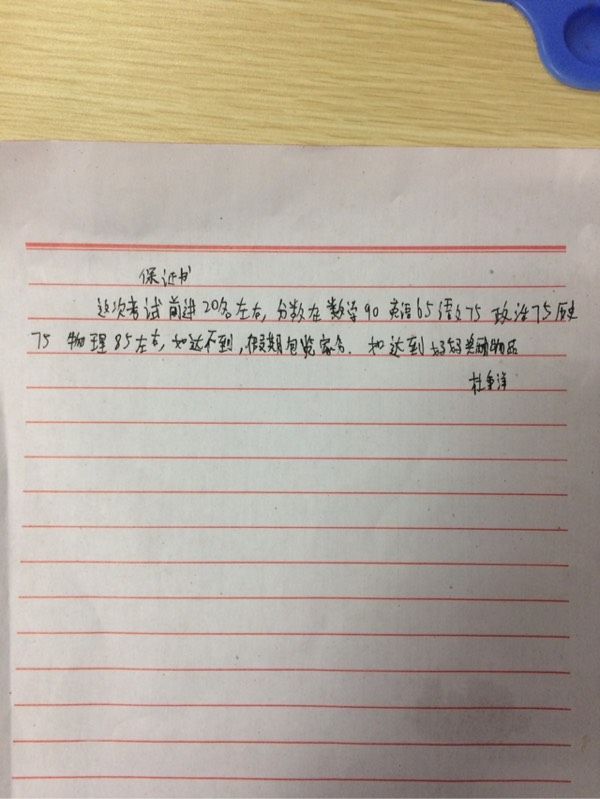 保证书
这次考试前进20名左右，分数在数学90 英语65 语文75 政治75 历史
75 物理85左右，如达不到，假期包览家务. 如达到好好奖励物品
杜争洋